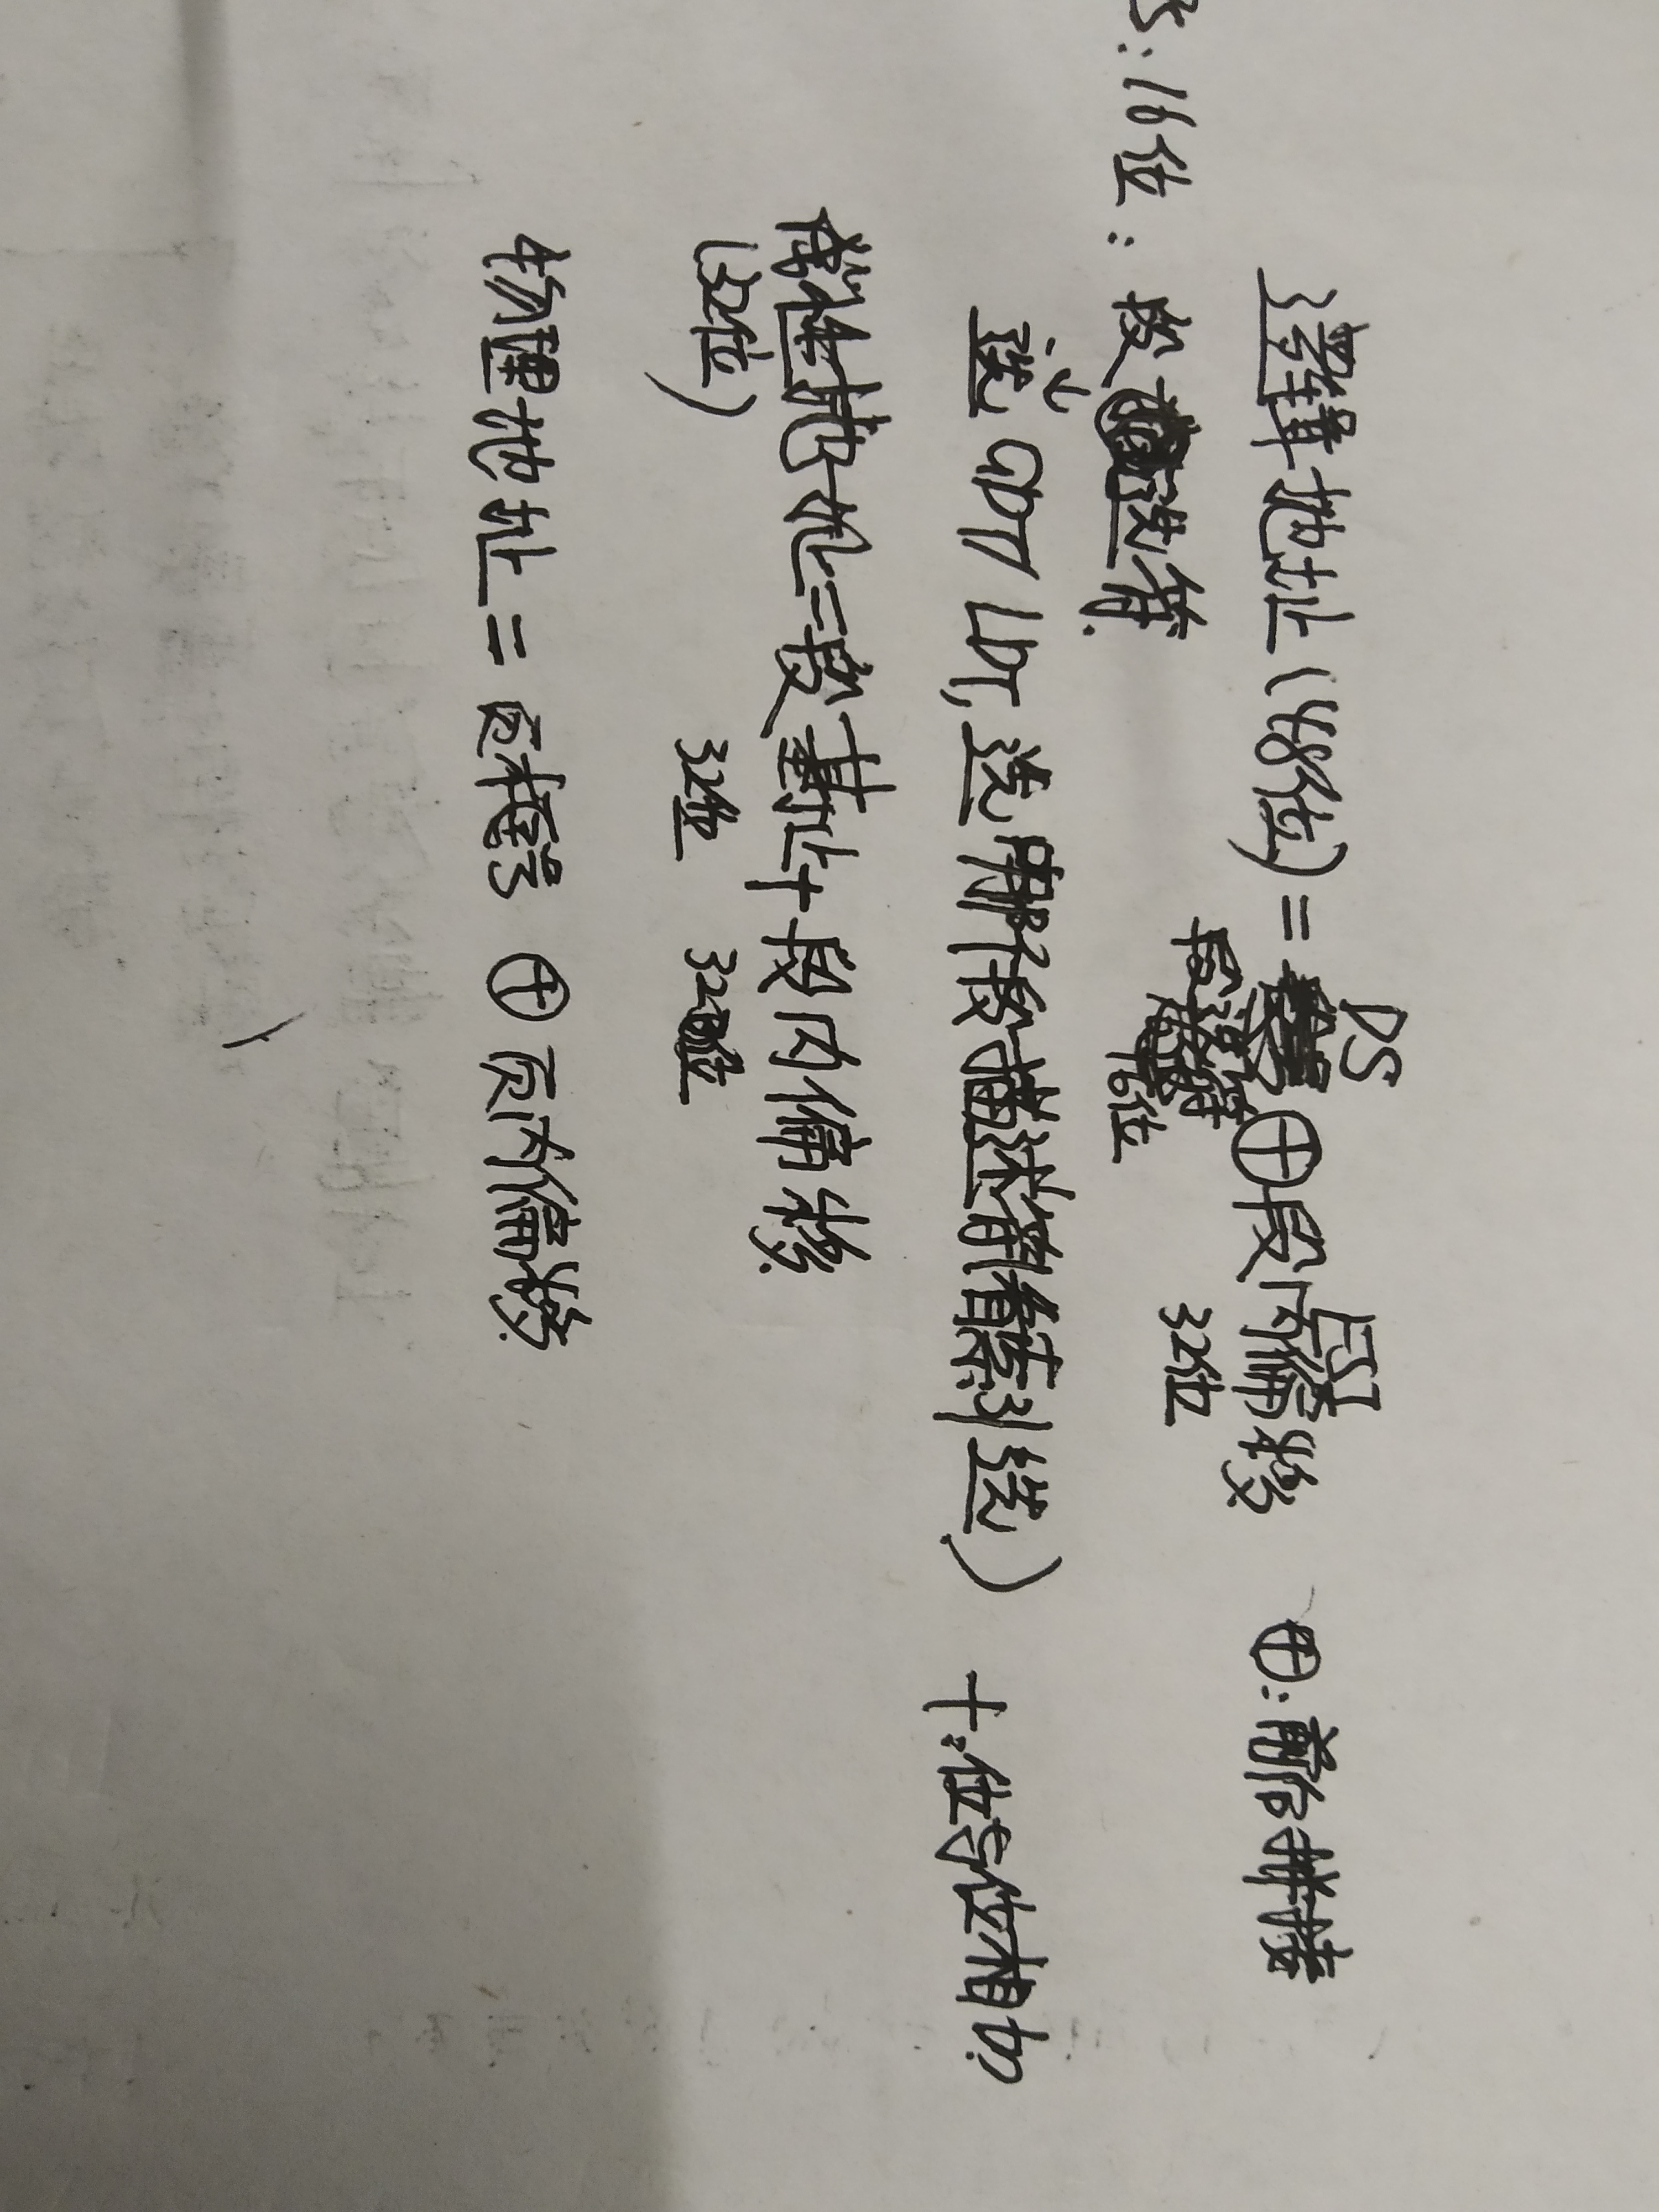 DS ESI
逻辑地址(48位)=⊕段内偏移 ⊕:前后拼接
段选择符 16位 32位
S:16位:段选符.
选GDT LDT,选用那个段描述符(索引选) +:位与位相加
线性地址=段基址+段内偏移
(32位) 32位 32位
物理地址=页框号 ⊕ 页内偏移